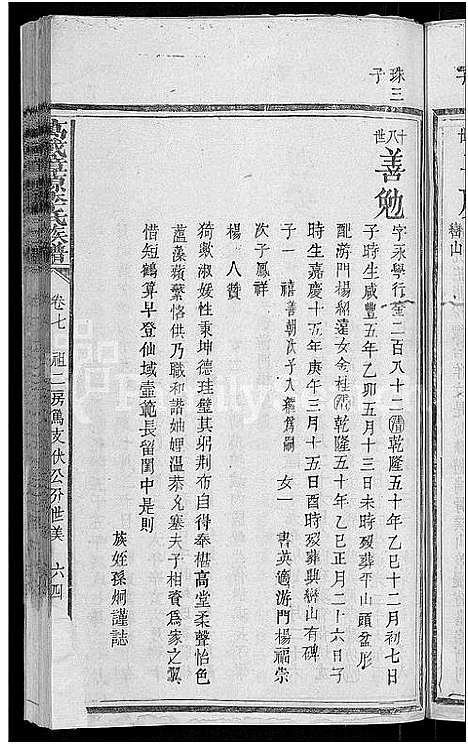 珠三
子
十八世
善勉
字永學行金二百八十二清乾隆五十年乙巳十二月初七日
子時生咸豐五年乙卯五月十三日未時歿葬平山頭盆形
配游門楊紹遠女金桂清乾隆五十年乙巳正月二十六日子
時生嘉慶十五年庚午三月十五日酉時歿葬與巒山有碑
子一 禧 善朝次子入繼為嗣 女一 書英適游門楊福崇
次子鳳祥
楊人贊
猗歟淑媛性秉坤德珪璧其躬荆布自得奉椹高堂柔聲怡色
蘊藻蘋蘩恪供乃職和諧妯娌溫恭允塞夫子相資為家之翼
惜短鶴算早登仙域壼範長留閨中是則
族姪孫炯謹誌
李氏族譜
卷七
祖二房萬支伏公分世美
六四
巒山